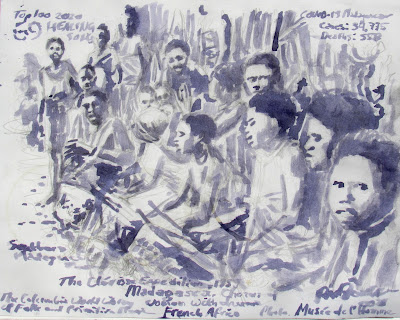 Top 100 2020
HEALING
Song
Covid-19 Madagascar
Cases: 39,775
Deaths: 558
Southern
The Clérisse Expedition 1938
Madagascar: Chorus
Women with drum
The Columbia World Library
of Folk and Primitive Music
French Africa
Photo Musée de l'Homme